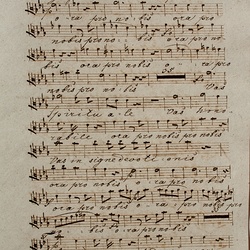 ora pro nobis ora pro
nobis pro nobis ora pro no
bis ora pro nobis ora pro
nobis pro nobis Vas
spirituale Vas honor
rabile ora pro nobis pro nobis
Vas insigne devotionis
ora pro nobis ora pro nobis
ora pro nobis ora pro nobis pro no
bis ora pro nobis